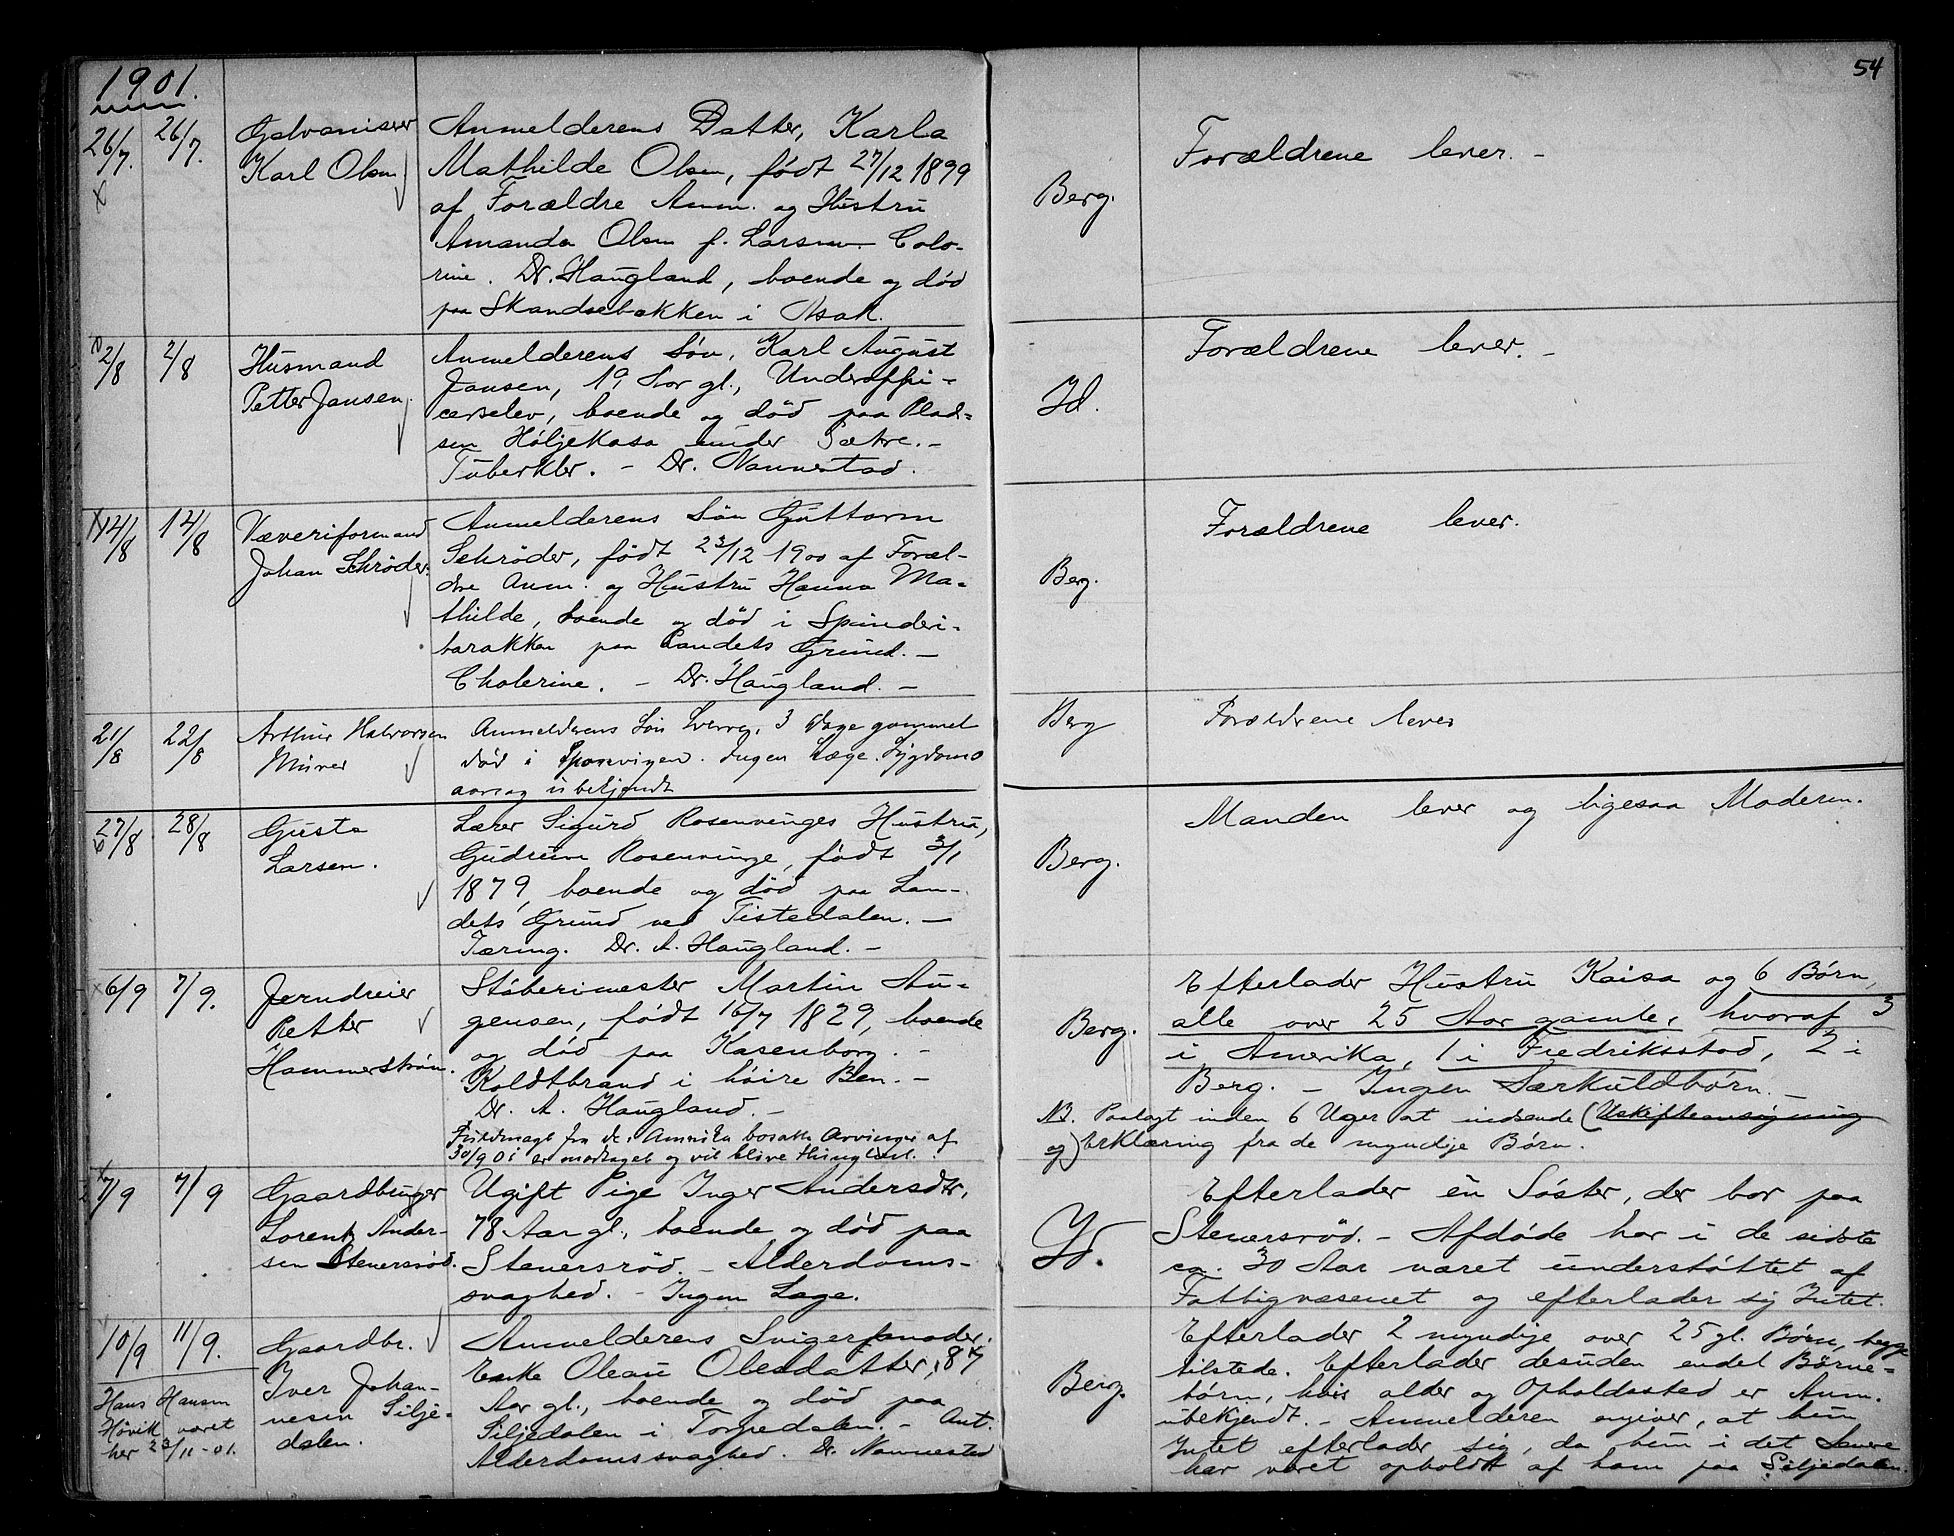 1901.
54
26/7. 26/7. Galvaniserer
Karl Olsen
Anmelderens Datter, Karla
Mathilde Olsen, født 27/12 1899
af Forældre Anm. og Hustru
Amanda Olsen f. Larsen. Colo-
rine. Dr. Haugland, boende og død
paa Skandsebakken i Asak.
Berg.
Forældrene lever. -
2/8 2/8 Husmand
Petter Jansen.
Anmelderens Søn, Karl August
Jansen, 19 Aar gl., Underoffi-
cerselev, boende og død paa Plad-
sen Høljekasa under Sætre. -
Tuberkler. - Dr. Nannestad.
Id.
Forældrene lever. -
12/8 12/8 Væveriformand
Johan Schrøder.
Anmelderens Søn Guttorm
Schrøder, født 23/12 1900 af Foræl-
dre Anm. og Hustru Hanna Ma-
thilde, boende og død i Spinderi-
barakken paa Landets Grund. -
Cholerine. - Dr. Haugland. -
Berg.
Forældrene lever.
21/8 22/8 Arthur Halvorsen
Murer
Anmelderens Søn Sverre, 3 Dage gammel
død i Sponvigen. Ingen Læge. Sygdoms
aarsag ubekjendt
Berg
Forældrene lever
27/8 28/8 Gusta
Larsen.
Lærer Sigurd Rosenvinges Hustru,
Gudrun Rosenvinge, født 3/1
1879, boende og død paa Lan-
dets Grund ved Tistedalen. -
Tæring. Dr. A. Haugland. -
Berg.
Manden lever og ligesaa Moderen.
6/9 7/9. Jerndreier
Petter
Hammerstrøm.
Støberimester Martin Au-
gensen, født 16/7 1829, boende
og død paa Kasenborg. -
Koldtbrand i høire Ben. -
Dr. A. Haugland. -
Fuldmagt fra de i Amerika bosatte Arvinger af
30/9 01 er modtaget og vil blive thinglæst.
Berg.
Efterlader Hustru Kaisa og 6 Børn,
alle over 25 Aar gamle, hvoraf 3
i Amerika, 1 i Fredriksstad, 2 i
Berg. - Ingen Særkuldbørn. -
NB. Paalagt inden 6 Uger at indsende (Uskifteansøgning
og) Erklæring fra de myndige Børn.
7/9 7/9 Gaardbruger
Lorentz Ander-
sen Stenersrød.
Ugift Pige Inger Andersdtr,
78 Aar gl., boende og død paa
Stenersrød. - Alderdoms-
svaghed. - Ingen Læge.
Id.
Efterlader én Søster, der bor paa
Stenersrød. - Afdøde har i de sidste
ca. 30 Aar været understøttet af
Fattigvæsenet og efterlader sig Intet.
10/9 11/9. Gaardbr.
Iver Johan-
nesen Silje-
dalen.
Hans Hansen
Høvik været
her 23/11-01.
Anmelderens Svigermoder,
Enke Oleau Olesdatter, 87
Aar gl., boende og død paa
Siljedalen i Torpedalen. - Ant.
Alderdomssvaghed. Dr. Nannestad
Berg.
Efterlader 2 myndige over 25 gl. Børn, begge
tilstede. Efterlader desuden endel Børne-
børn, hvis alder og Opholdssted er Anm.
ubekjendt. - Anmelderen angiver, at hun
Intet efterlader sig, da hun i det Senere
har været opholdt af ham paa Siljedalen.